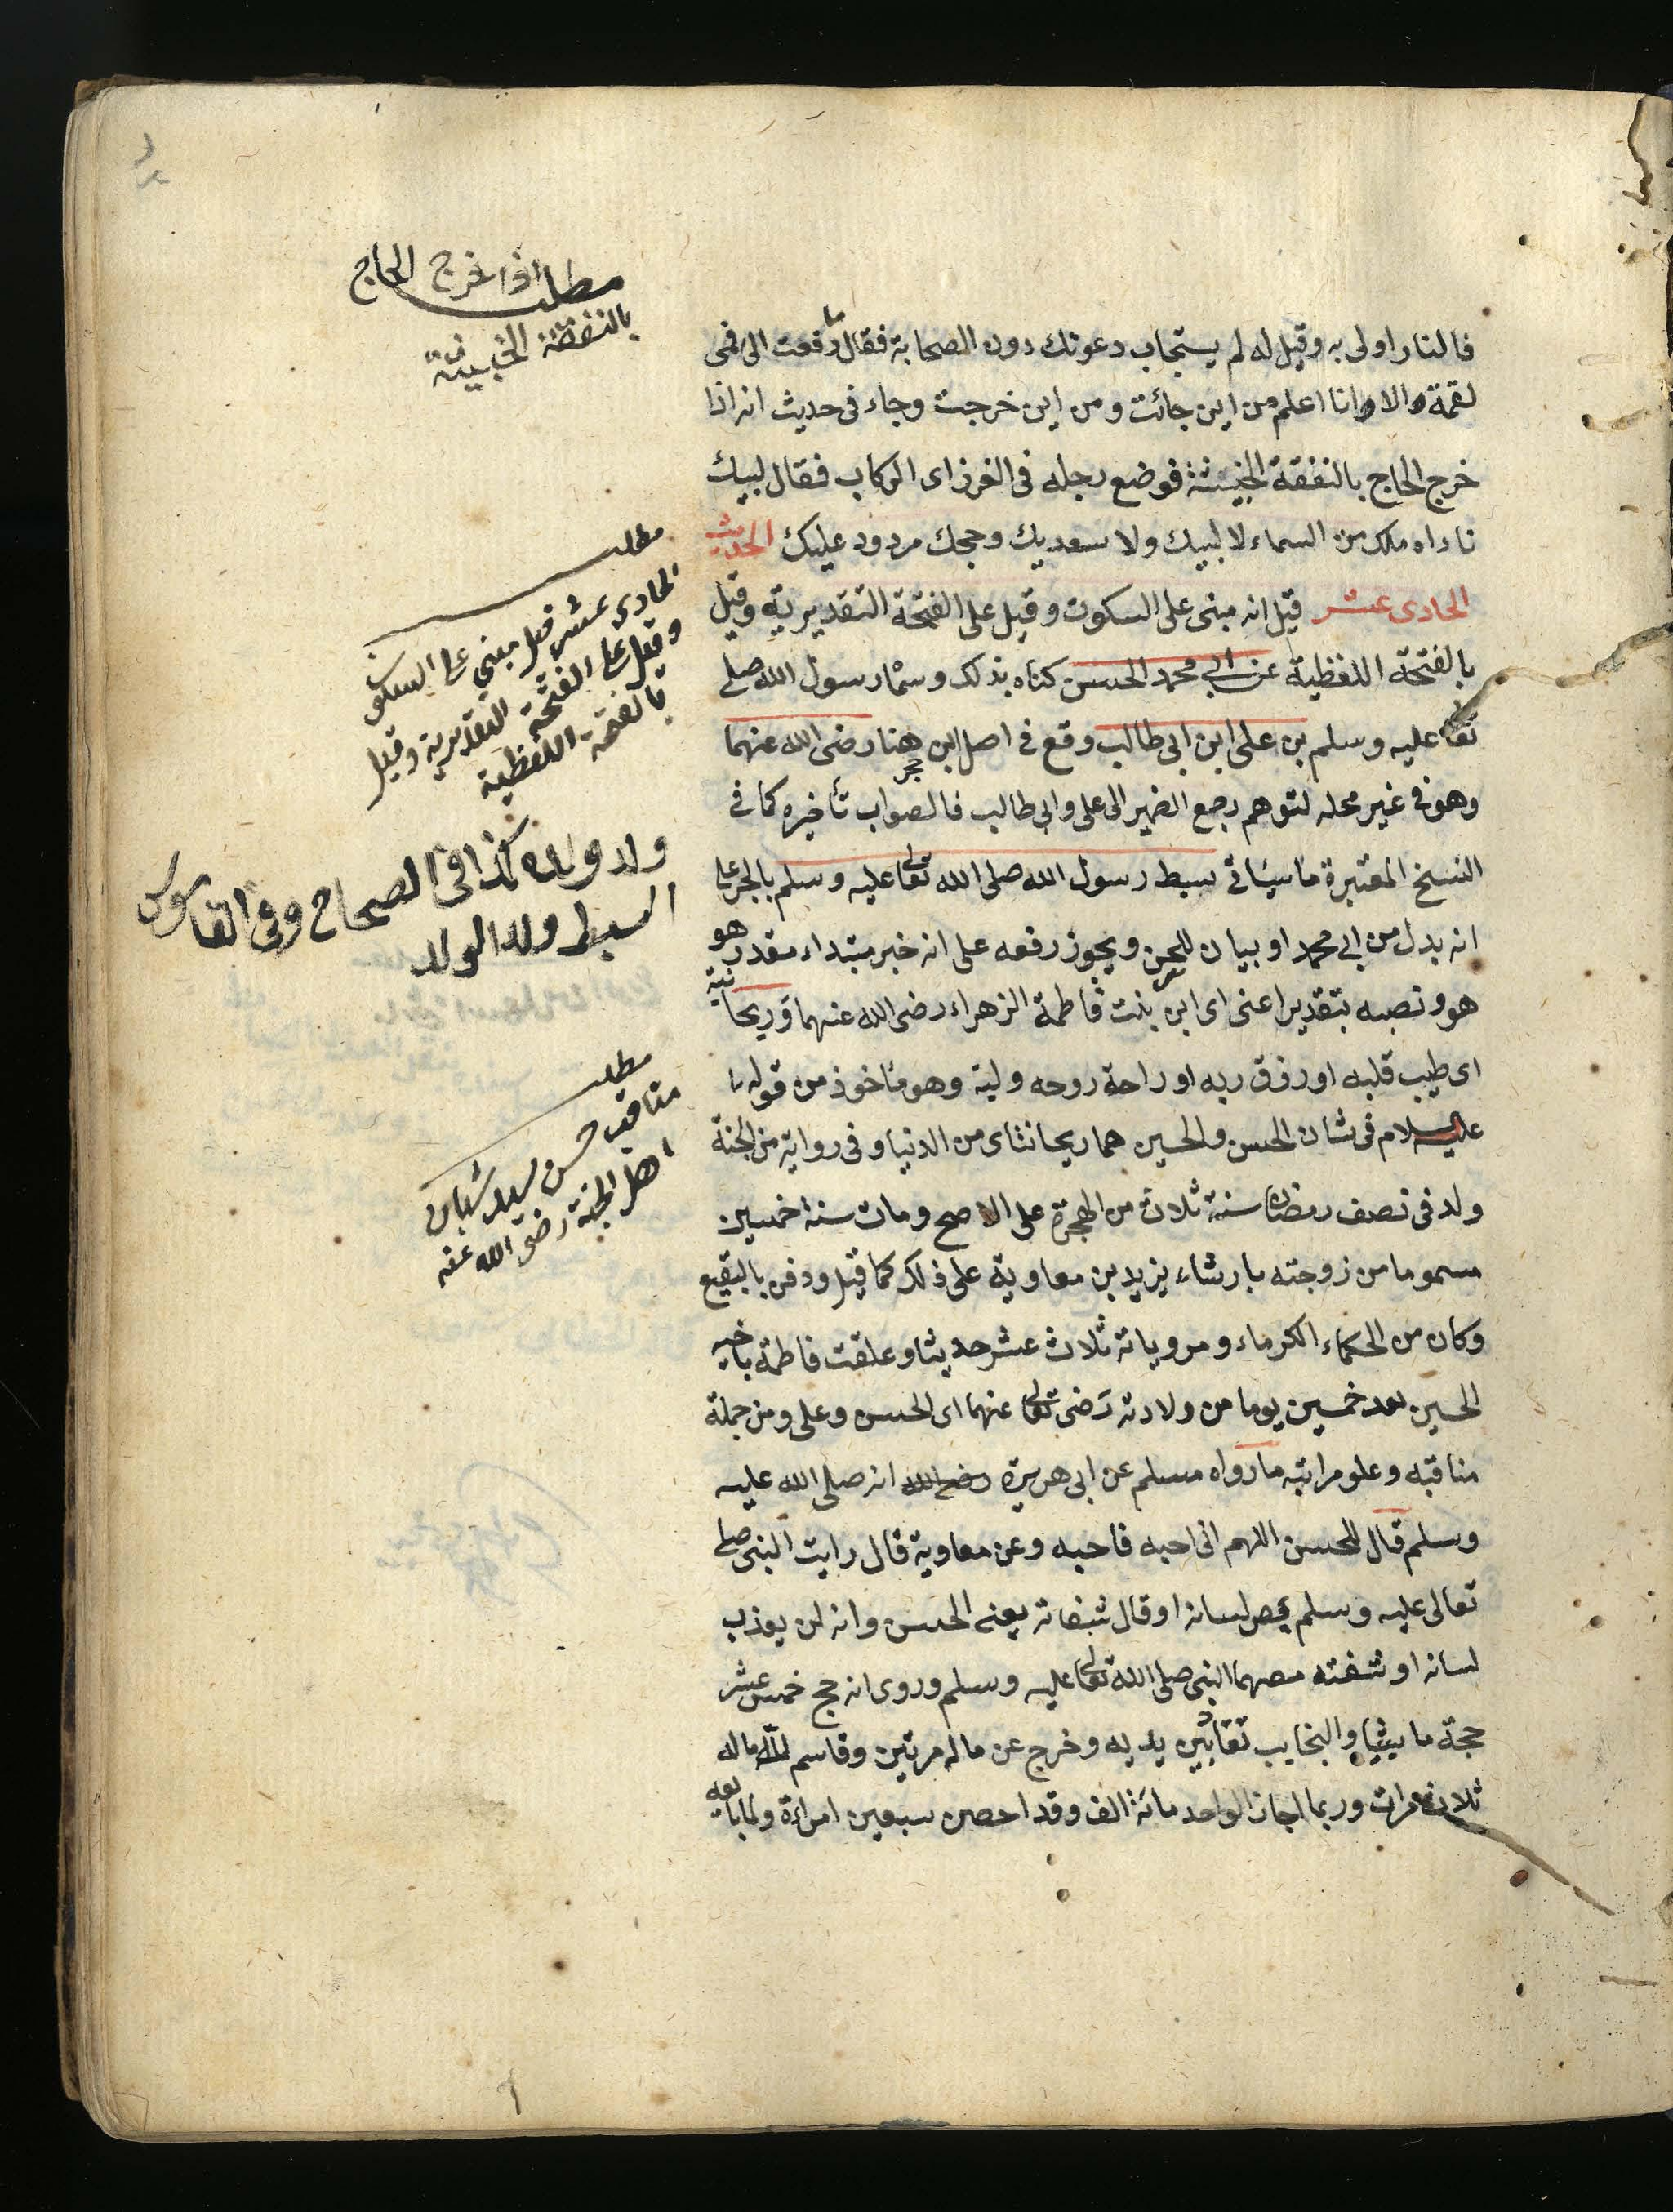 فالنار اولى به وقيل له لم يستجاب دعوتك دون الصحابة فقال ما رفعت الى فمى
لقمة الا وانا اعلم من اين جائت ومن اين خرجت وجاء فى حديث انه اذا
خرج الحاج بالنفقة الخبيثة فوضع رجله فى الغرز اى الركاب فقال لبيك
ناداه ملك من السماء لا لبيك ولا سعديك وحجك مردود عليك الحديث
الحادى عشر قيل انه مبنى على السكون وقيل على الفتحة التقديرية وقيل
بالفتحة اللفظية عن ابي محمد الحسن كناه بذلك وسماه رسول الله صلى
تعا عليه وسلم بن على ابن ابى طالب وقع فى اصل ابن حجر هنا رضى الله عنهما
وهو فى غير محله لتوهم رجع الضمير الى على وابى طالب فالصواب تأخيره كما فى
النسخ المعتبرة ما سيأتى سبط رسول الله صلى الله تعالى عليه وسلم بالجر على
انه بدل من ابى محمد او بيان للحسن ويجوز رفعه على انه خبر مبتداء مقدر هو
هو ونصبه بتقدير اعنى اى ابن بنت فاطمة الزهراء رضى الله عنهما وريحانته
اى طيب قلبه او رزق ربه او راحة روحه وليه وهو مأخوذ من قوله
عليه السلام فى شان الحسن والحسين هما ريحانتاى من الدنيا وفى رواية من الجنة
ولد فى نصف رمضان سنة ثلاث من الهجرة على الاصح ومات سنة خمسين
مسموما من زوجته بارشاء يزيد بن معاوية على ذلك كما قيل ودفن بالبقيع
وكان من الحكماء الكرماء ومروياته ثلاث عشر حديثا وعلقت فاطمة باخيه
الحسين بعد خمسين يوما من ولادته رضى تعالى عنهما اى الحسن وعلى ومن جملة
مناقبه وعلو مراتبه ما رواه مسلم عن ابى هريرة رضى الله انه صلى الله عليه
وسلم قال للحسن اللهم انى احبه فاحبه وعن معاوية قال رايت النبى صلى
تعالى عليه وسلم يمص لسانه او قال شفاته يعنى الحسن وانه لن يعذب
لسانه او شفته مصهما النبى صلى الله تعالى عليه وسلم وروى انه حج خمس عشر
حجة ماشيا والنجايب تقاد بين يديه وخرج عن ماله مرتين وقاسم لله ماله
ثلاث مرات وربما اجاز الواحد مائة الف وقد احصن سبعين امراءة ولما بايعه
مطلب اذا خرج الحاج
بالنفقة الخبيثة
مطلب
الحادى عشر قيل مبني على السكون
وقيل على الفتحة التقديرية وقيل
بالفتحة اللفظية
ولد ولده كذا فى الصحاح وفى القاموس
السبط ولد الولد
مطلب
مناقب حسن سيد شباب
اهل الجنة رضى الله عنه